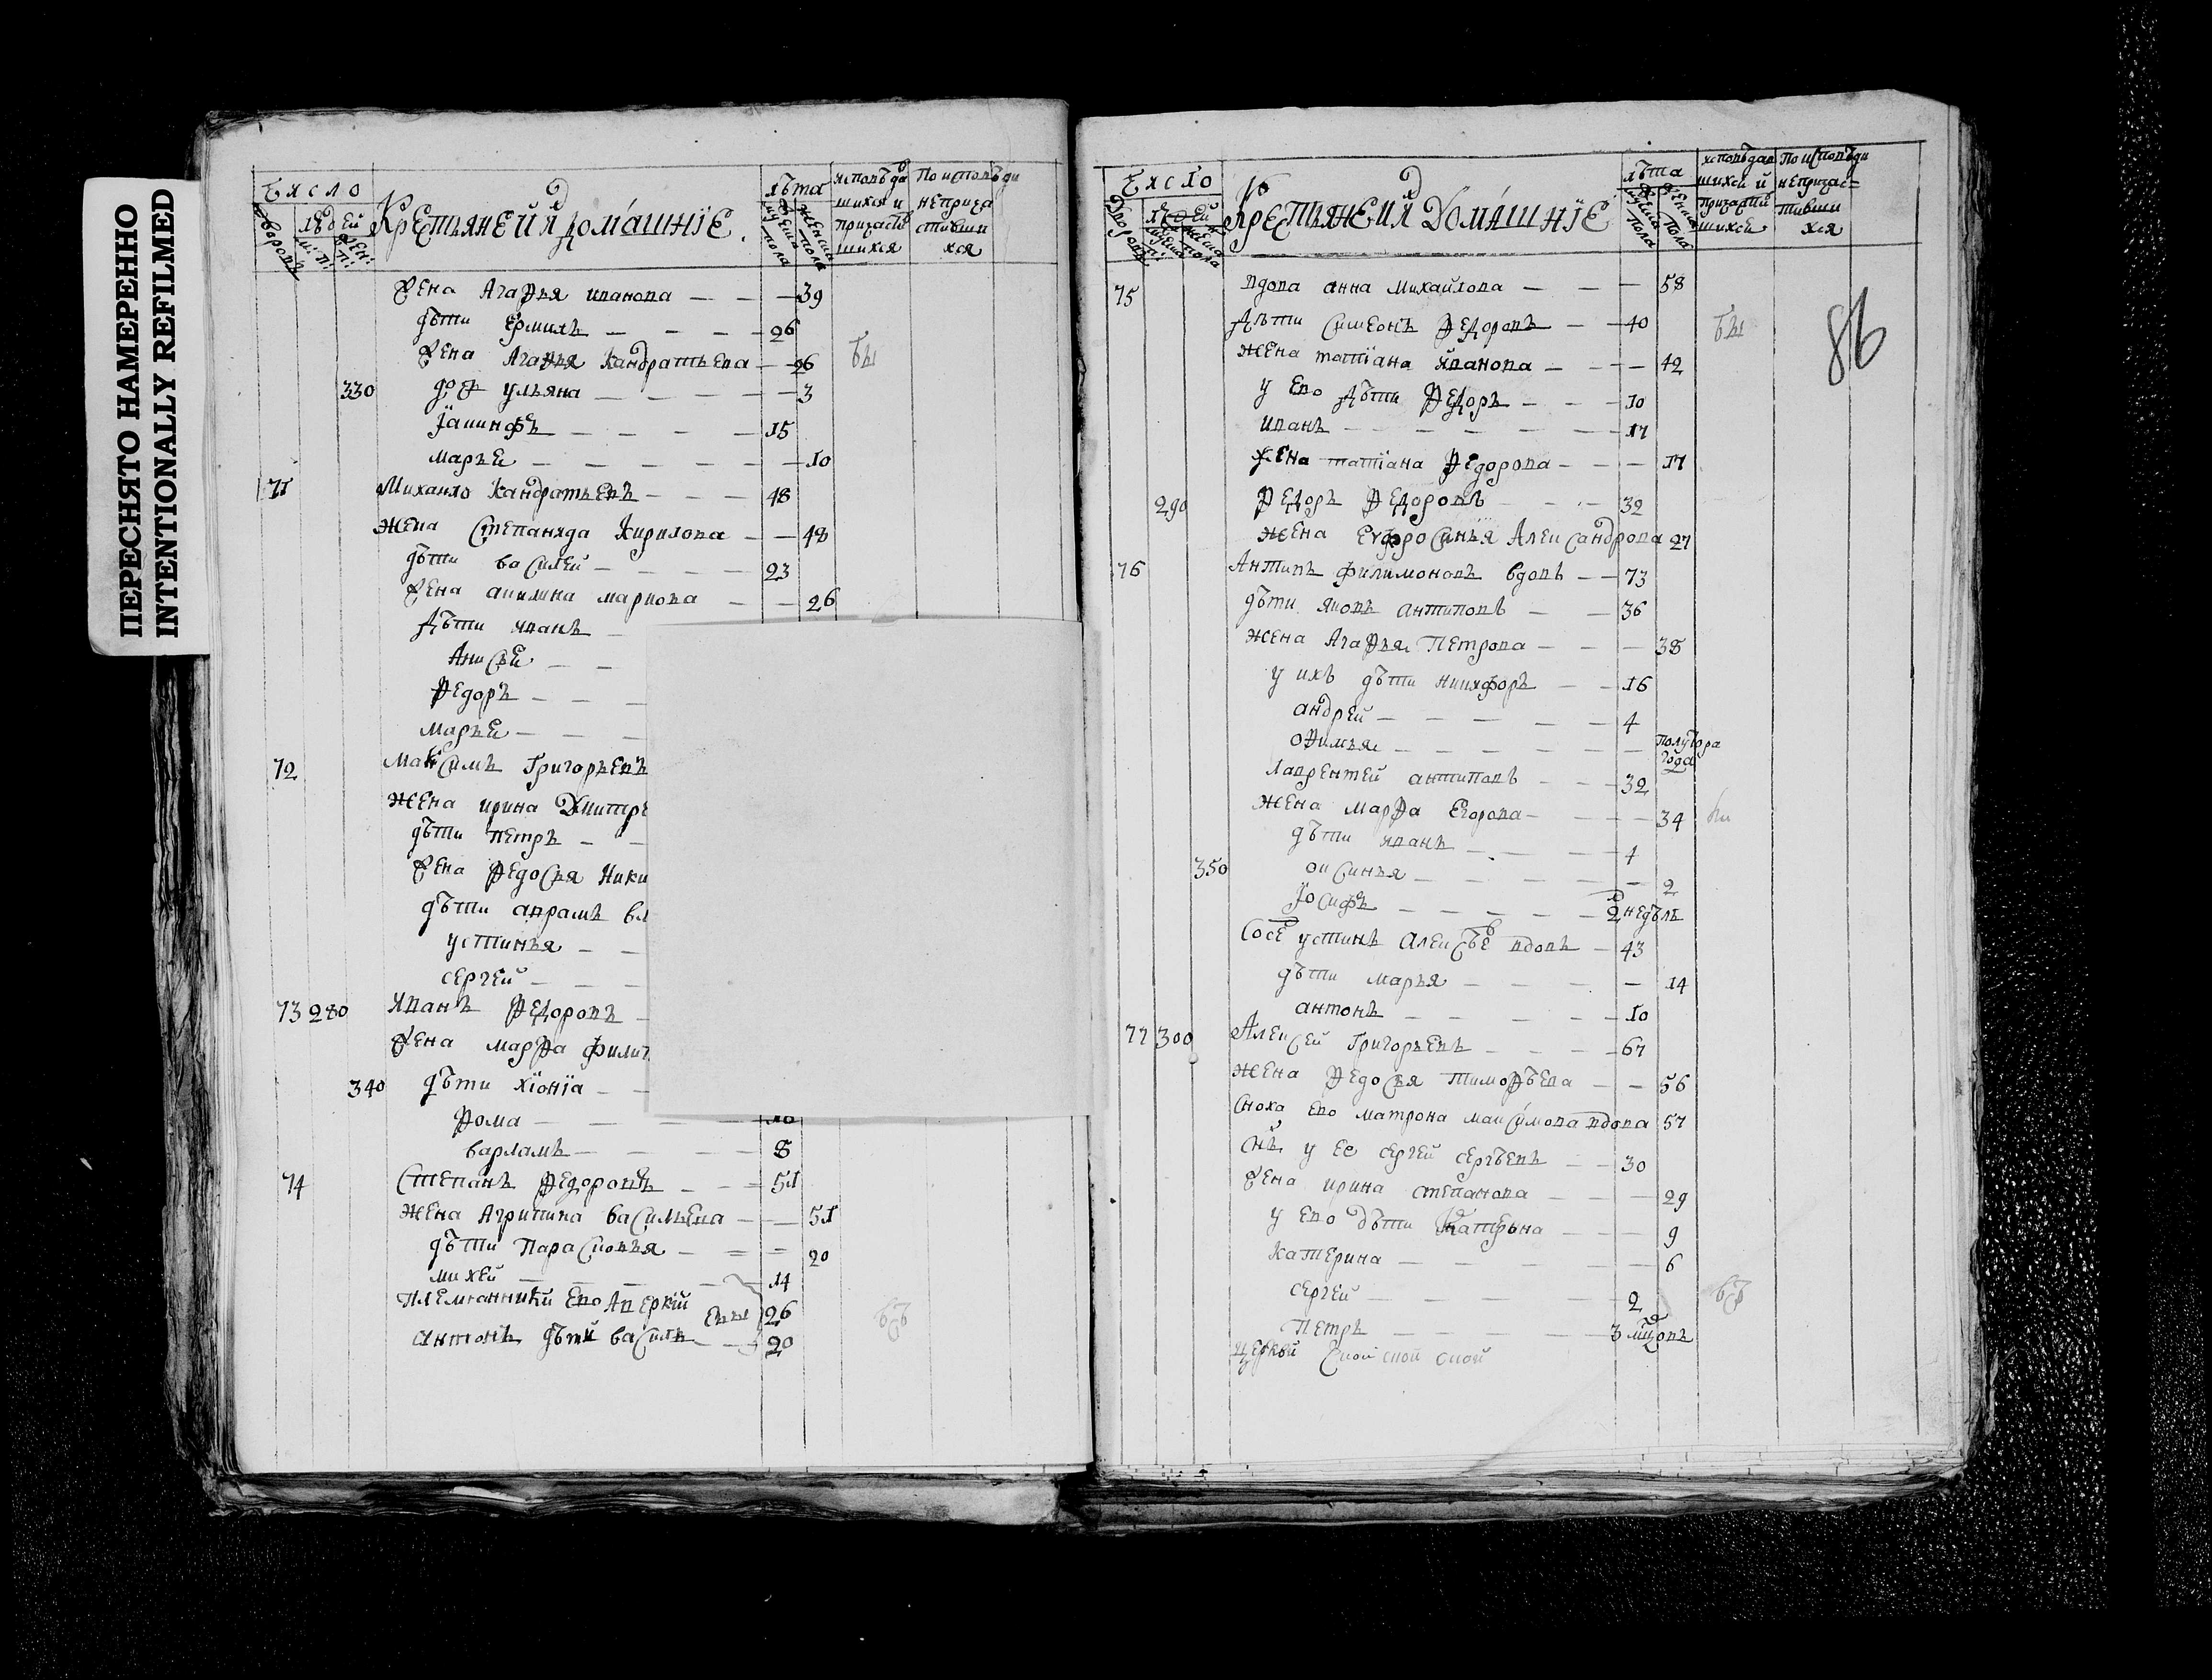 ПЕРЕСНЯТО НАМЕРЕННО
INTENTIONALLY REFILMED
Число
людей
Крестьяне и ихъ домашнїе
лѣта
исповѣда
шихся и
причасти
шихся
По исповѣди
неприча
стивши
хся
жена Агафья иванова 39
дѣти Ермилъ 26
жена Агафья кандратьева 26
330 дочь ульяна 3
Їакинфъ 15
марья 10
71 Михаило Кандратьевъ 48
жена Степанида Кирилова 48
дѣти василей 23
жена акилина маркова 26
дѣти иванъ
Анисья
Федоръ
марья
72 Максимъ Григорьевъ
жена ирина Дмитре
дѣти петръ
жена Федосья Ники
дѣти аврамъ
устинья
сергей
73 280 Иванъ Федоровъ
жена марфа филип
340 дѣти хїонїа
Фома 10
варламъ 8
74 Степанъ Федоровъ 51
жена Агрипина васильева 51
дѣти Парасковья 20
михей 14
племянники ево Аверкїй 26
антонъ дѣти василь 20
Число
Дворовъ
людей
Крестьяне и ихъ домашнїе
лѣта
исповѣдав
шихся и
причасти
шихся
По исповѣди
непричас=
тивши
хся
86
75 вдова анна михайлова 58
дѣти Симеонъ Федоровъ 40
жена татїана иванова 42
у ево дѣти Федоръ 10
иванъ 17
жена татїана Федорова 17
290 Федоръ Федоровъ 32
жена Еуфросинья Александрова 27
76 Антипъ филимоновъ вдовъ 73
дѣти яковъ антиповъ 36
жена Агафья Петрова 38
у ихъ дѣти никифоръ 16
андрей 4
офимья полутора года
лаврентей антиповъ 32
жена марфа Егорова 34
дѣти иванъ 4
350 оксинья 2
Їосифъ 2 недѣль
Сосе устинъ алексѣе вдовъ 43
дѣти марья 14
антонъ 10
77 300 Алексей Григорьевъ 67
жена Федосья тимофѣева 56
сноха ево матрона максимова вдова 57
снъ у ее сергей сергѣевъ 30
жена ирина степанова 29
у ево дѣти 9
катерина 6
сергей 2
петръ 3 мцовъ